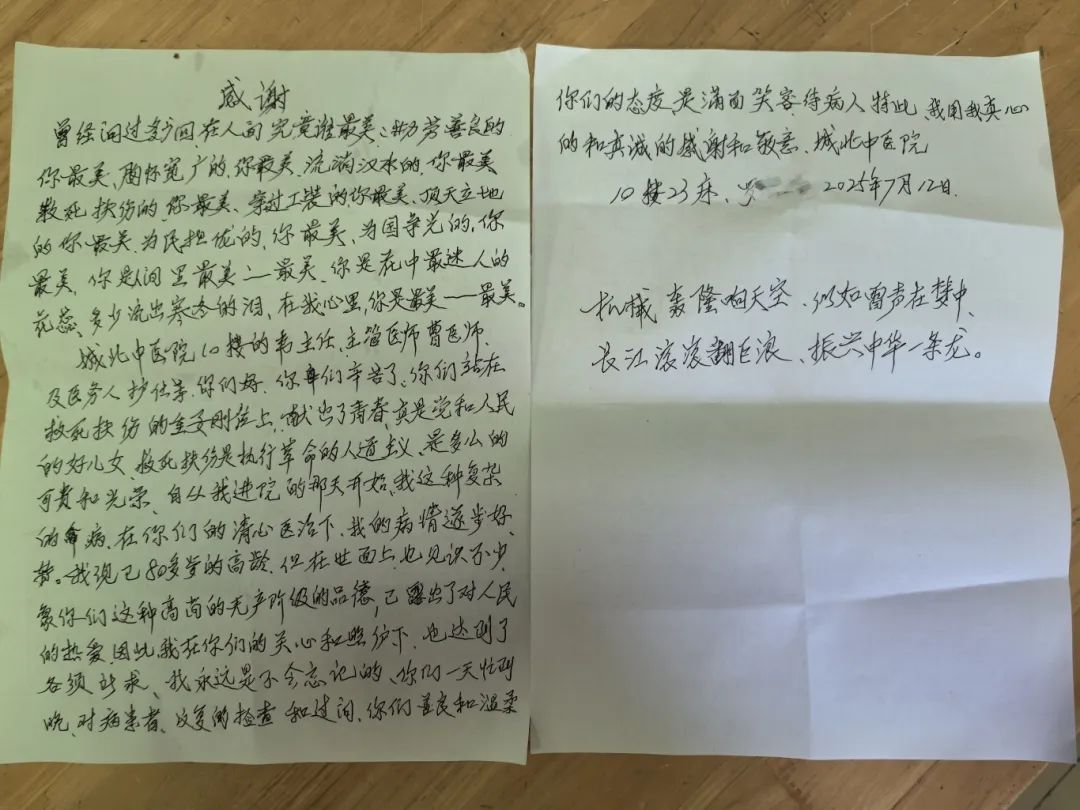 感谢
曾经问过多少回在人间究竟谁最美、勤劳善良的
你最美、胸怀宽广的、你最美、流淌汉水的、你最美
救死扶伤的、你最美、穿过工装的你最美、顶天立地
的你最美、为民担优的、你最美、为国争光的、你
最美、你是人间里最美——最美、你是花中最迷人的
花蕊、多少流出寒冬的泪、在我心里、你是最美——最美。
城北中医院10楼的韦主任、主管医师曹医师、
及医务人护仕等、你们好、你们辛苦了、你们站在
救死扶伤的主要刚位上、献出了青春、真是党和人民
的好儿女、救死扶伤是执行革命的人道主义、是多么的
可贵和光荣、自从我进院的那天开始、我这种复杂
的病、在你们的清心医治下、我的病情逐步好
转。我现已80多岁的高龄、但在世面上也见识不少、
象你们这种高尚的无产阶级的品德、已露出了对人民
的热爱、因此、我在你们的关心和照护下、也达到了
各须所求、我永远是不会忘记的、你们一天忙到
晚、对病患者、反复的检查和过问、你们善良和温柔
你们的态度、是满面笑容待病人特此、我用我真心
的和真诚的感谢和敬意、城北中医院
10楼23床、罗 2025年7月12日.
机械轰隆响天空、似如雷声在梦中、
长江滚滚翻巨浪、振兴中华一条龙。